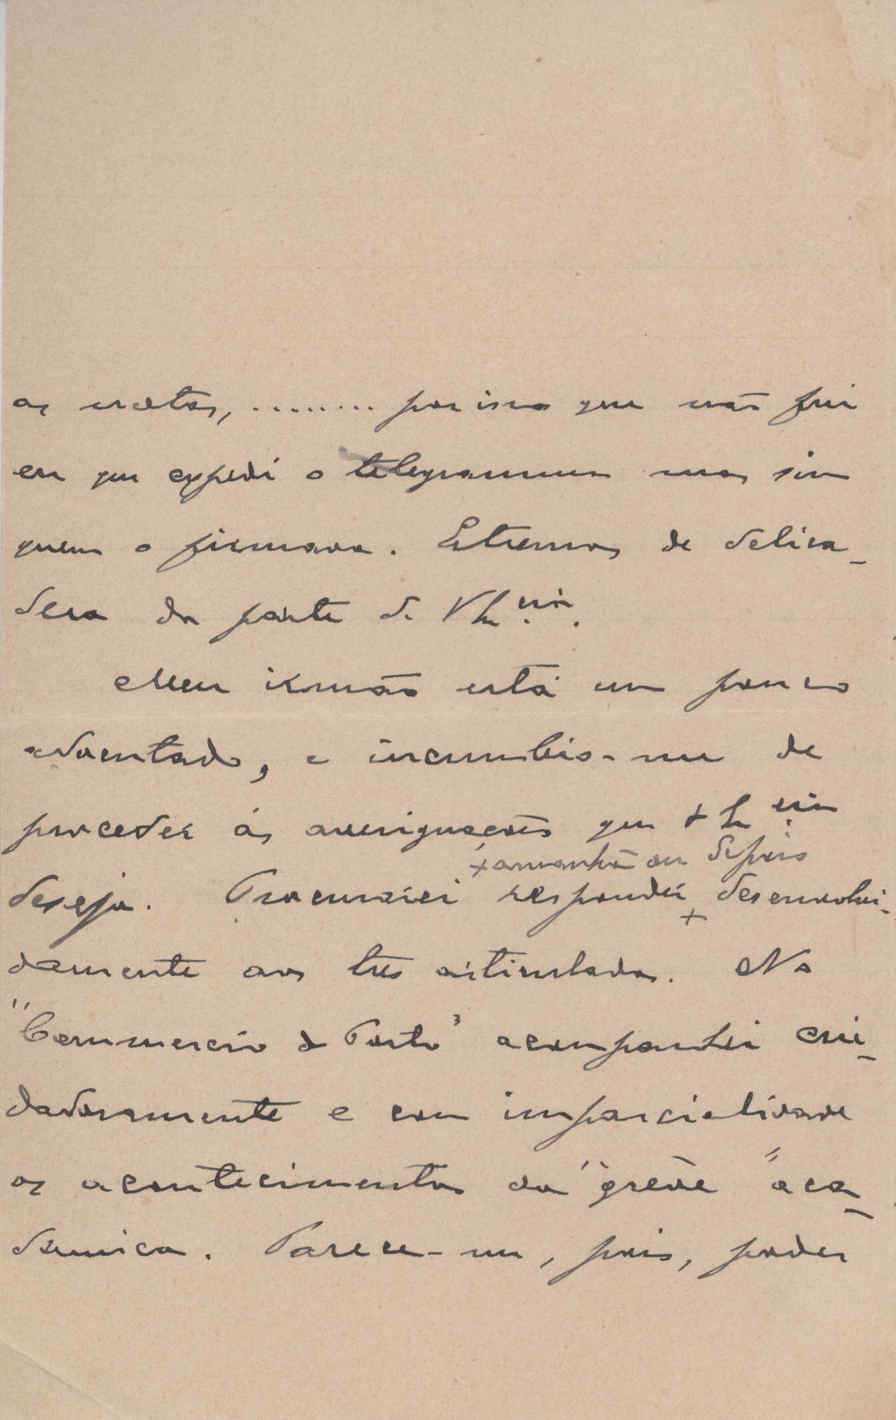 as notas, ......... por isso que não fui
eu que expedi o telegramma mas sim
quem o firmava. Extremos de delica-
desa da parte de V. Ex.cia.
Meu irmão está um pouco
adoentado, e incumbio-me de
proceder ás averiguações que V. Ex.cia
+ amanhã ou depois
deseja. Procurarei responder + desenvolvi-
damente aos tres articulados. No
"Commercio do Porto" acompanhei cui-
dadosamente e com imparcialidade
os acontecimentos da "gréve" aca-
demica. Parece-me, pois, poder